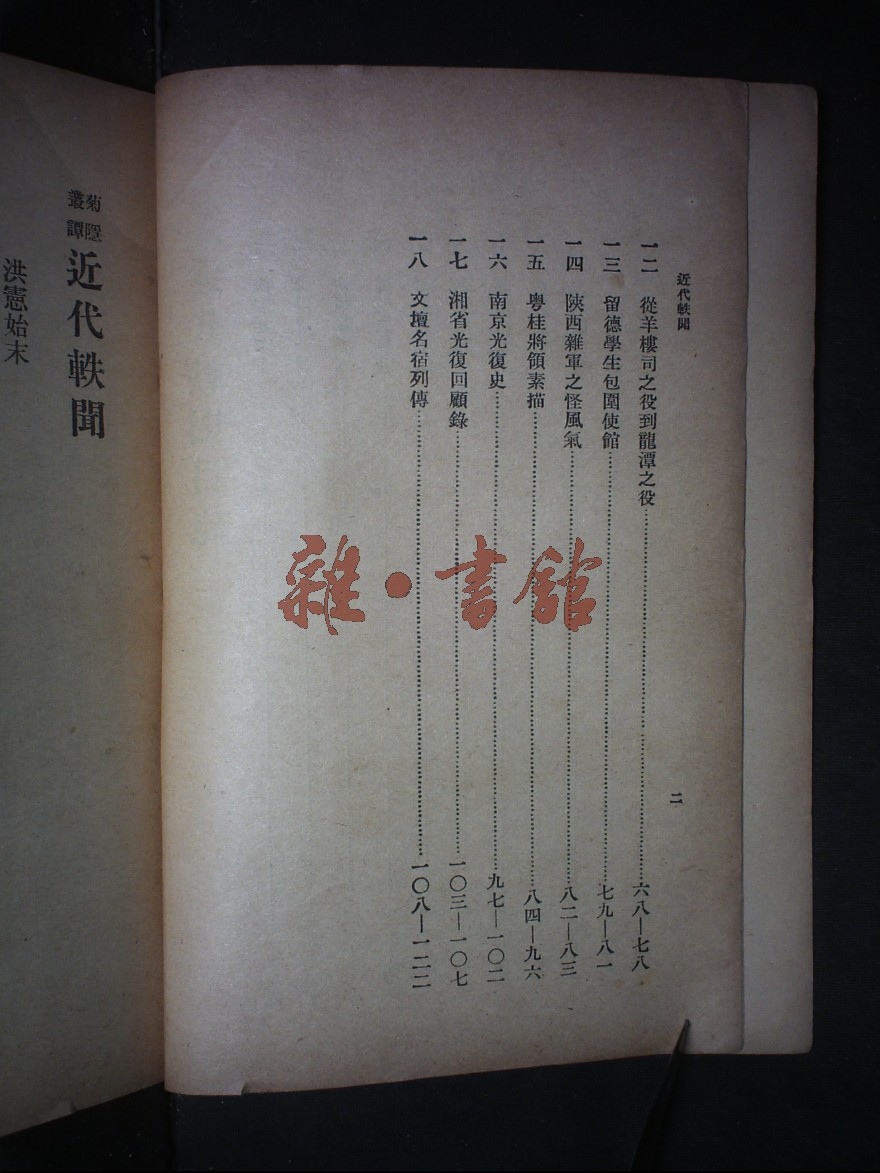 近代軼聞
二
一二 從羊樓司之役到龍潭之役……六八—七八
一三 留德學生包圍使館……七九—八一
一四 陝西雜軍之怪風氣……八二—八三
一五 粵桂將領素描……八四—九六
一六 南京光復史……九七—一〇二
一七 湘省光復回顧錄……一〇三—一〇七
一八 文壇名宿列傳……一〇八—一二二
菊隱叢譚
近代軼聞
洪憲始末
雜·書館